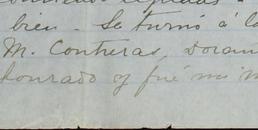 bien. Se turnó á la
M. Contreras, Doram
honrado y fué mi m